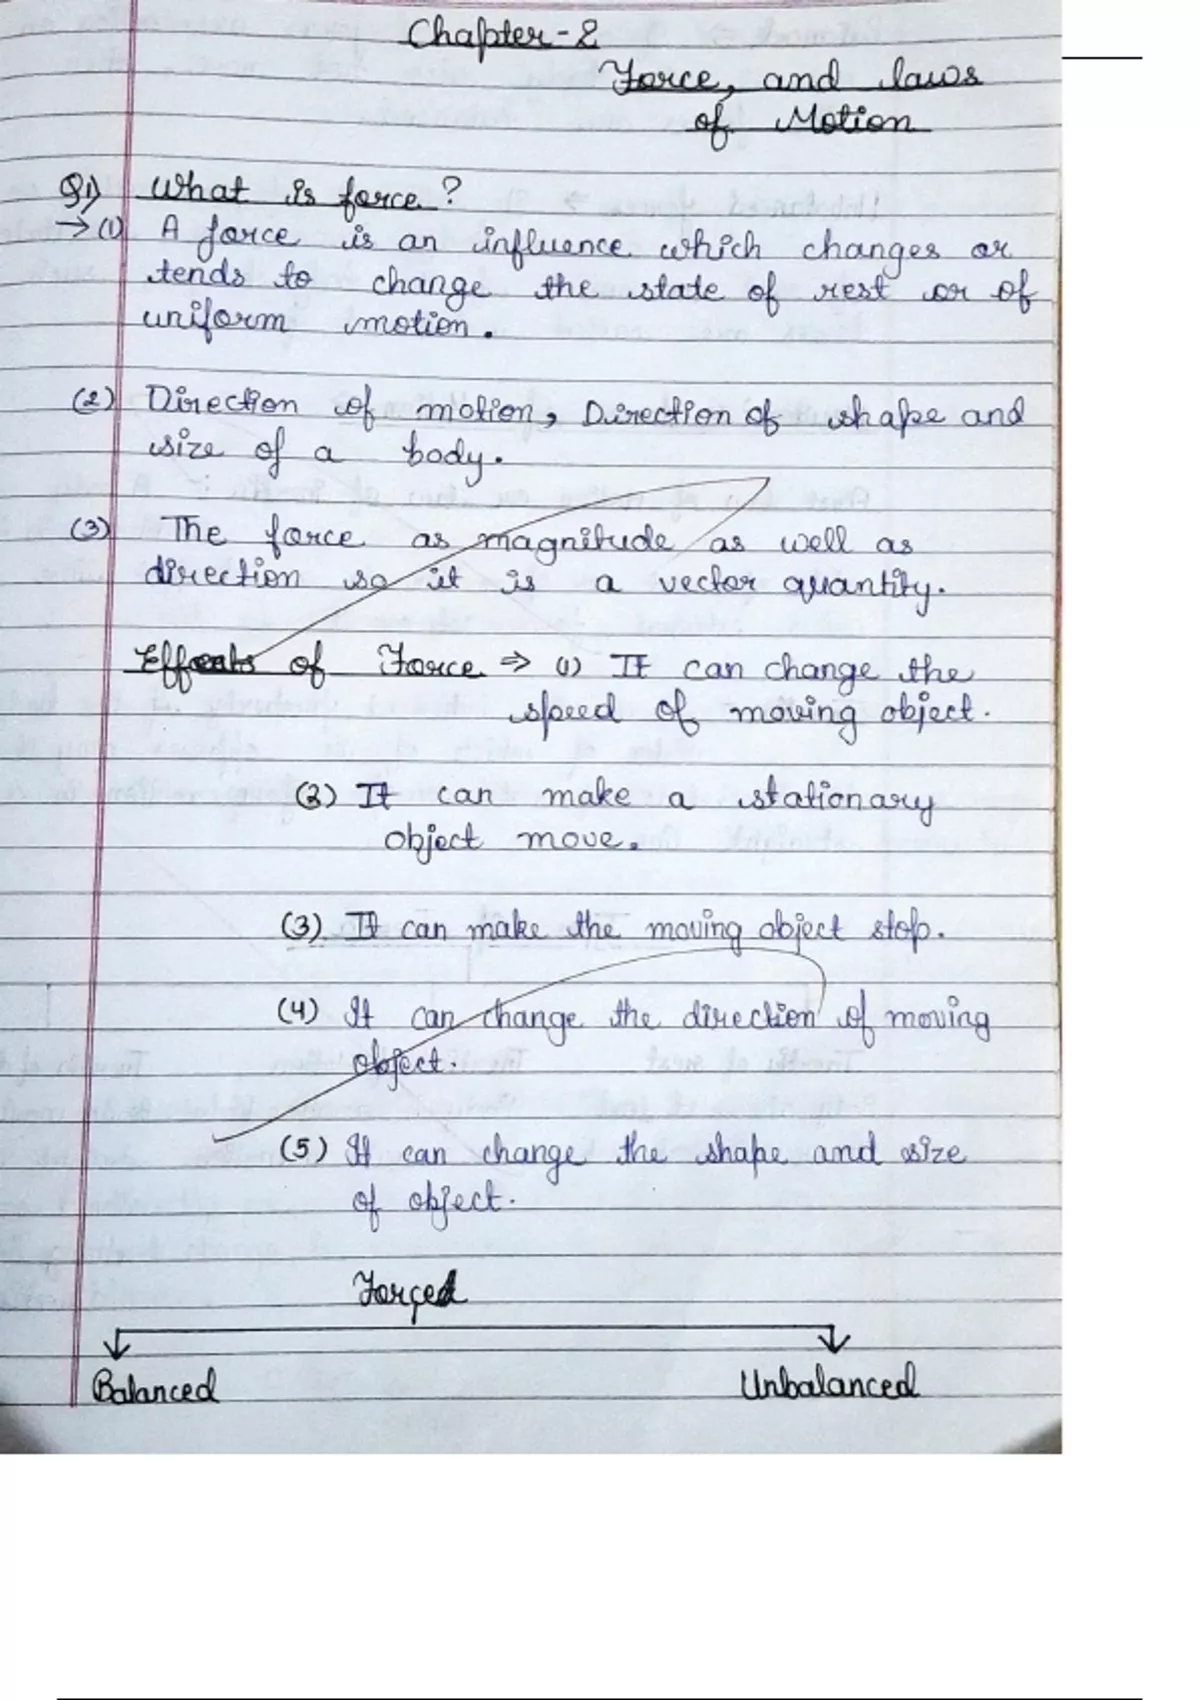 Chapter-2
Force, and laws
of Motion
Q1) What is force?
→(1) A force is an influence which changes or
tends to change the state of rest or of
uniform motion.
(2) Direction of motion, Direction of shape and
size of a body.
(3) The force as magnitude as well as
direction so it is a vector quantity.
Effects of Force ⇒ (1) It can change the
speed of moving object.
(2) It can make a stationary
object move.
(3) It can make the moving object stop.
(4) It can change the direction of moving
object.
(5) It can change the shape and size
of object.
Forced
Balanced Unbalanced